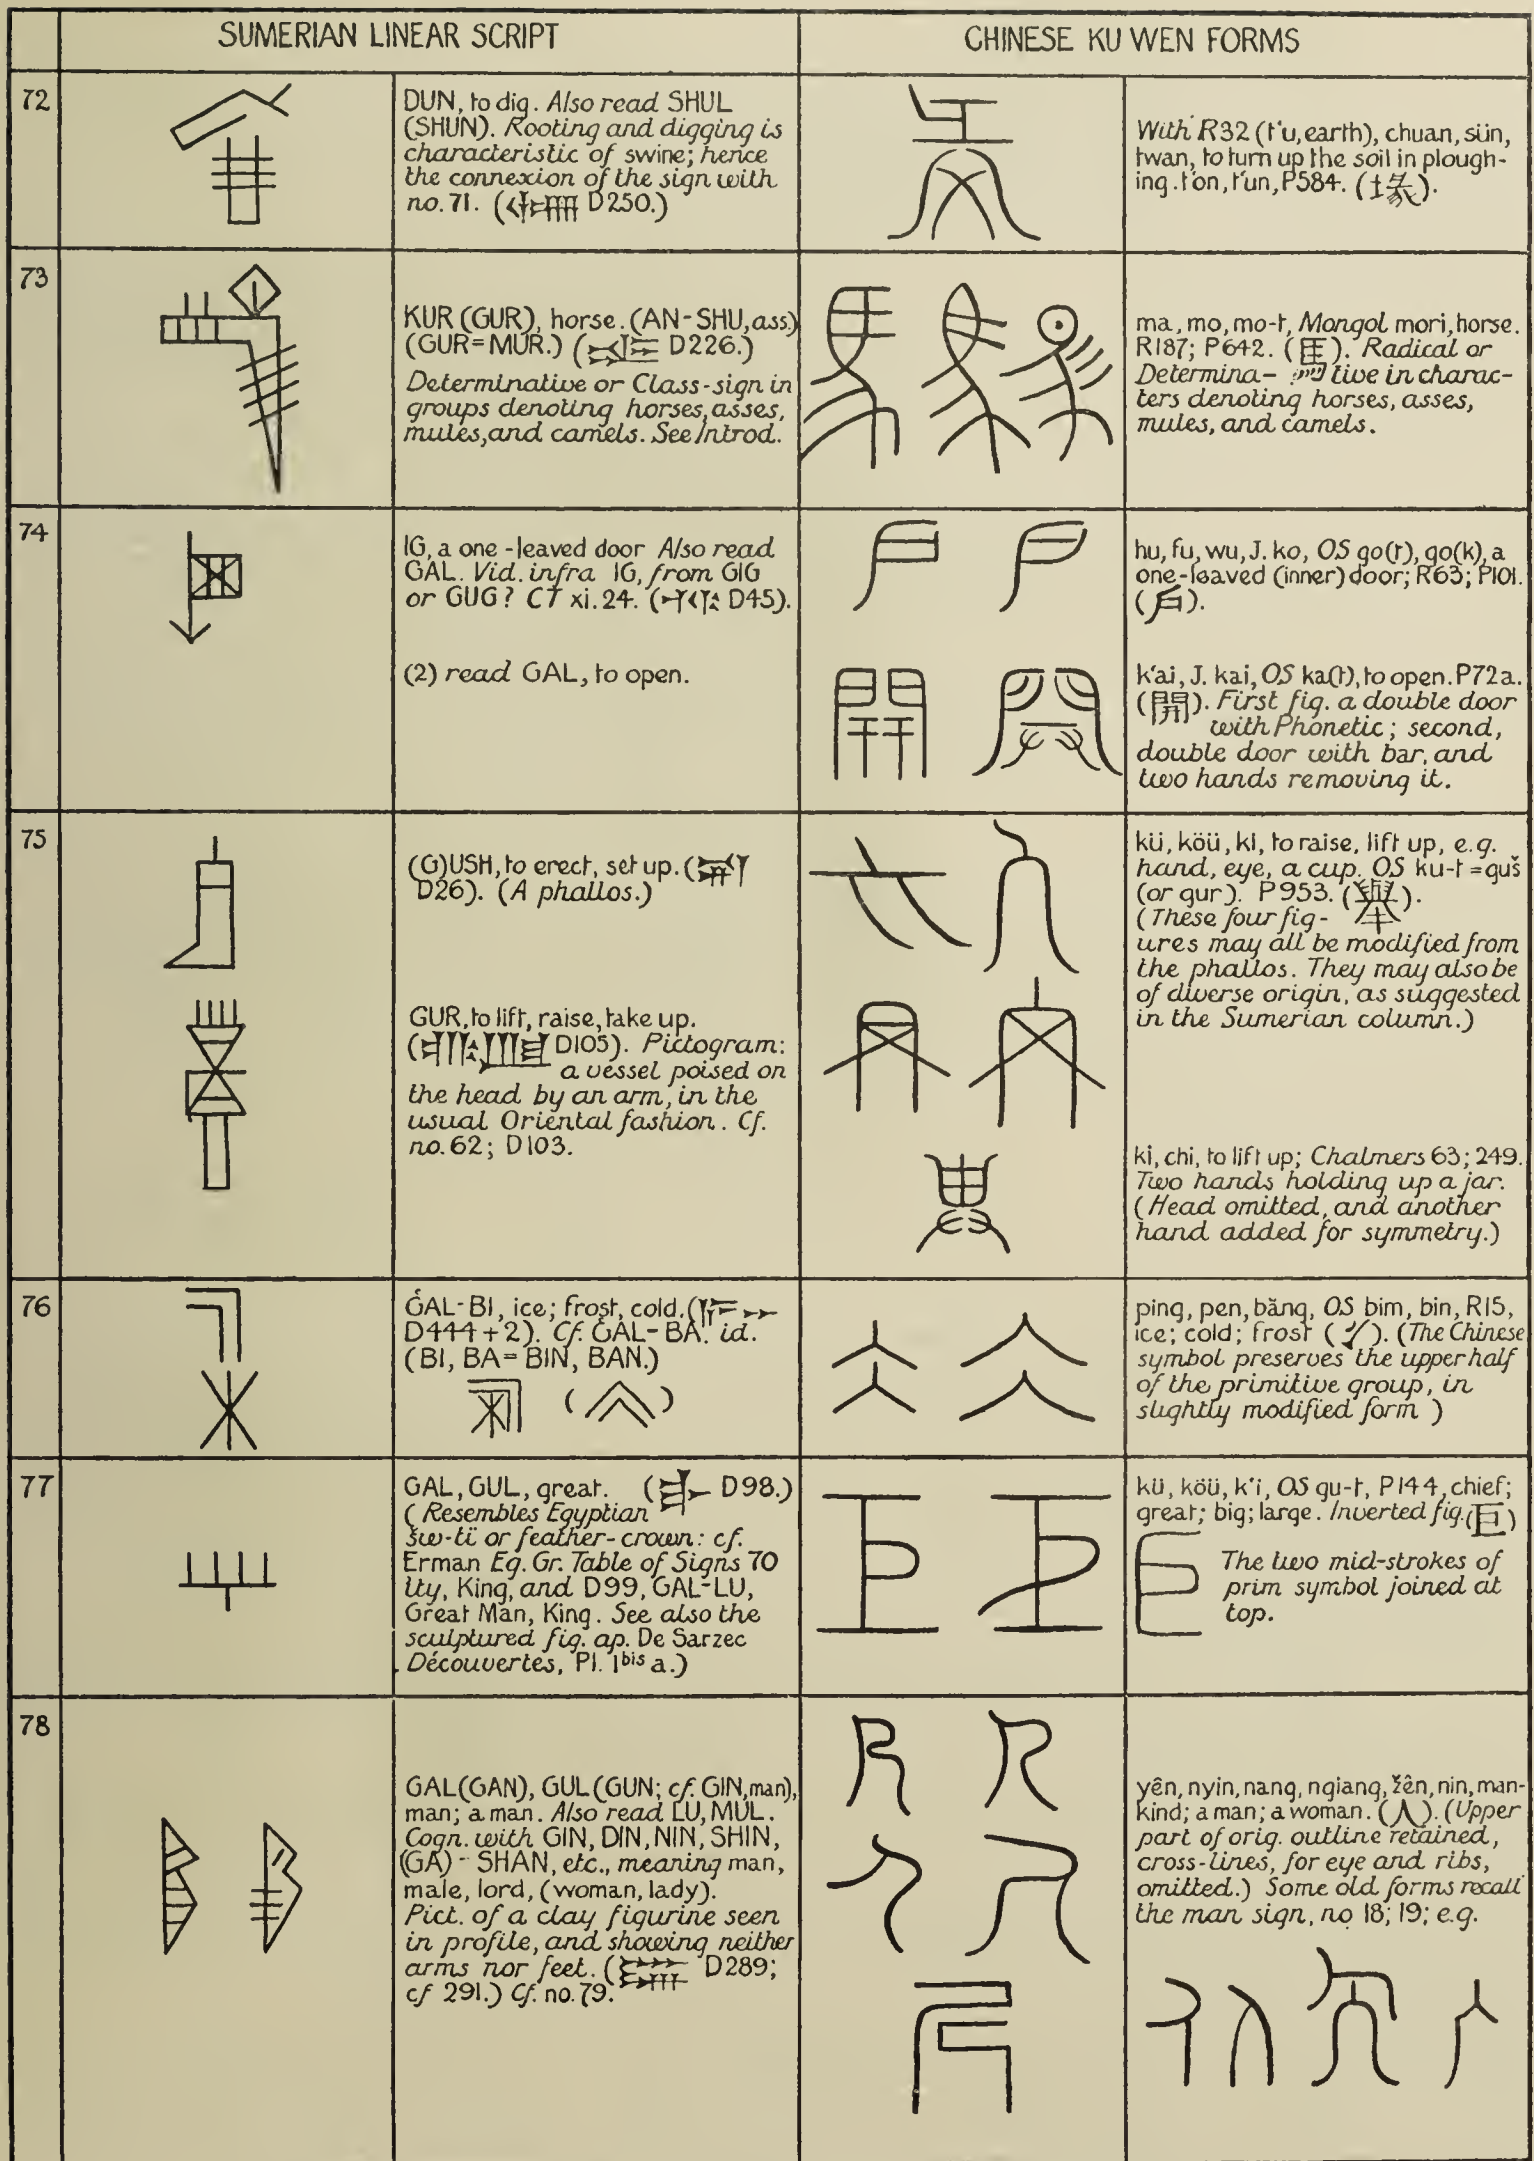 SUMERIAN LINEAR SCRIPT
CHINESE KU WEN FORMS
72
DUN, to dig. Also read SHUL
(SHUN). Rooting and digging is
characteristic of swine; hence
the connexion of the sign with
no. 71. ( D250.)
With R32 (t'u, earth), chuan, sün,
twan, to turn up the soil in plough-
ing. t'on, t'un, P584. (堟).
73
KUR (GUR), horse. (AN-SHU, ass.)
(GUR=MUR.) ( D226.)
Determinative or Class-sign in
groups denoting horses, asses,
mules, and camels. See Introd.
ma, mo, mo-t, Mongol mori, horse.
R187; P642. ( ). Radical or
Determina- tive in charac-
ters denoting horses, asses,
mules, and camels.
74
IG, a one-leaved door Also read
GAL. Vid. infra IG, from GIG
or GUG? CT xi. 24. ( D45).
(2) read GAL, to open.
hu, fu, wu, J. ko, OS go(t), go(k), a
one-leaved (inner) door; R63; P101.
(戶).
k'ai, J. kai, OS ka(t), to open. P72a.
(開). First fig. a double door
with Phonetic; second,
double door with bar, and
two hands removing it.
75
(G)USH, to erect, set up. (
D26). (A phallos.)
GUR, to lift, raise, take up.
( D105). Pictogram:
a vessel poised on
the head by an arm, in the
usual Oriental fashion. Cf.
no. 62; D103.
kü, köü, ki, to raise, lift up, e.g.
hand, eye, a cup. OS ku-t = guš
(or gur). P953. (舉).
(These four fig-
ures may all be modified from
the phallos. They may also be
of diverse origin, as suggested
in the Sumerian column.)
ki, chi, to lift up; Chalmers 63; 249.
Two hands holding up a jar.
(Head omitted, and another
hand added for symmetry.)
76
ĠAL-BI, ice; frost, cold. (
D444+2). Cf. ĠAL-BA. id.
(BI, BA = BIN, BAN.)
( )
ping, pen, băng, OS bim, bin, R15,
ice; cold; frost (冫). (The Chinese
symbol preserves the upper half
of the primitive group, in
slightly modified form )
77
GAL, GUL, great. ( D98.)
(Resembles Egyptian
šw-tï or feather-crown: cf.
Erman Eg. Gr. Table of Signs 70
ity, King, and D99, GAL-LU,
Great Man, King. See also the
sculptured fig. ap. De Sarzec
Découvertes, Pl. 1bis a.)
kü, köü, k'i, OS gu-t, P144, chief;
great; big; large. Inverted fig. (巨)
The two mid-strokes of
prim symbol joined at
top.
78
GAL (GAN), GUL (GUN; cf. GIN, man),
man; a man. Also read LU, MUL.
Cogn. with GIN, DIN, NIN, SHIN,
(GA)-SHAN, etc., meaning man,
male, lord, (woman, lady).
Pict. of a clay figurine seen
in profile, and showing neither
arms nor feet. ( D289;
cf 291.) Cf. no. 79.
yên, nyin, nang, ngiang, žên, nin, man-
kind; a man; a woman. (人). (Upper
part of orig. outline retained,
cross-lines, for eye and ribs,
omitted.) Some old forms recall
the man sign, no 18; 19; e.g.